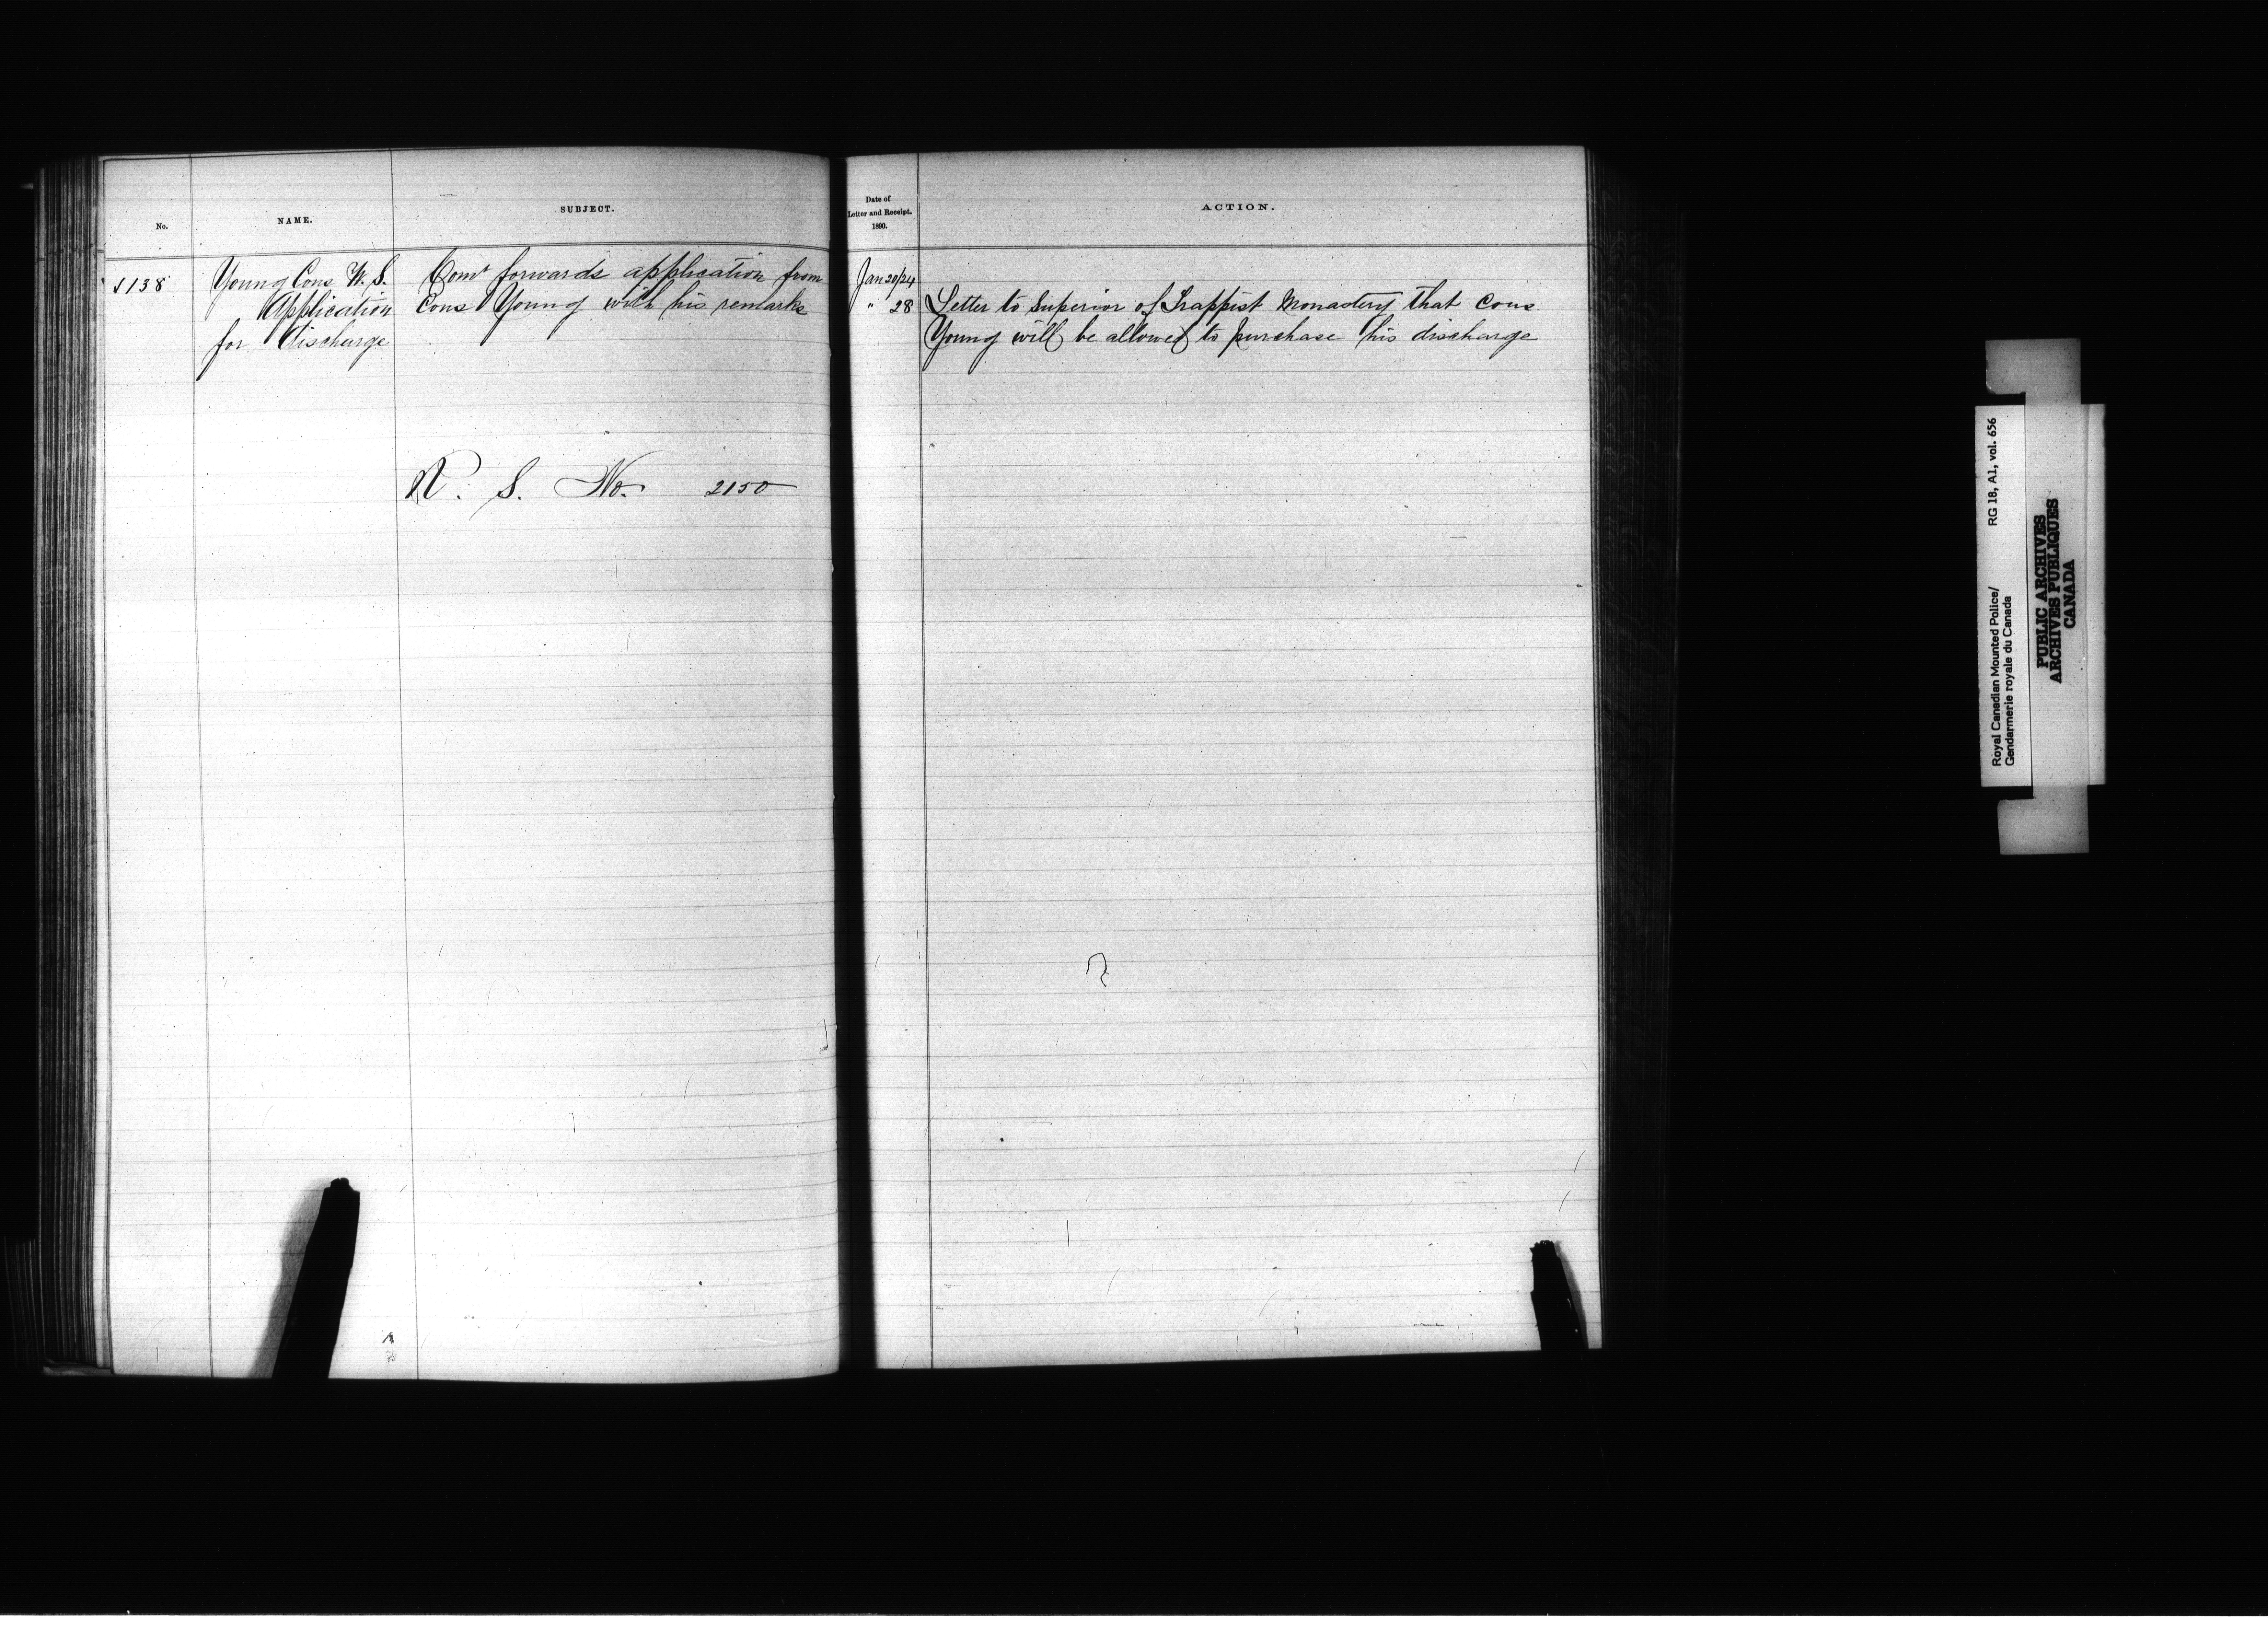 No.
NAME.
SUBJECT.
138
Young Cons W. S.
Application
for Discharge
Comr forwards application from
Cons Young with his remarks
S. No. 2150
Date of
Letter and Receipt.
1890.
ACTION.
Jan 20/24
" 28
Letter to Superior of Trappist Monastery that Cons
Young will be allowed to purchase his discharge
Royal Canadian Mounted Police/ RG 18, A1, vol. 656
Gendarmerie royale du Canada
PUBLIC ARCHIVES
ARCHIVES PUBLIQUES
CANADA